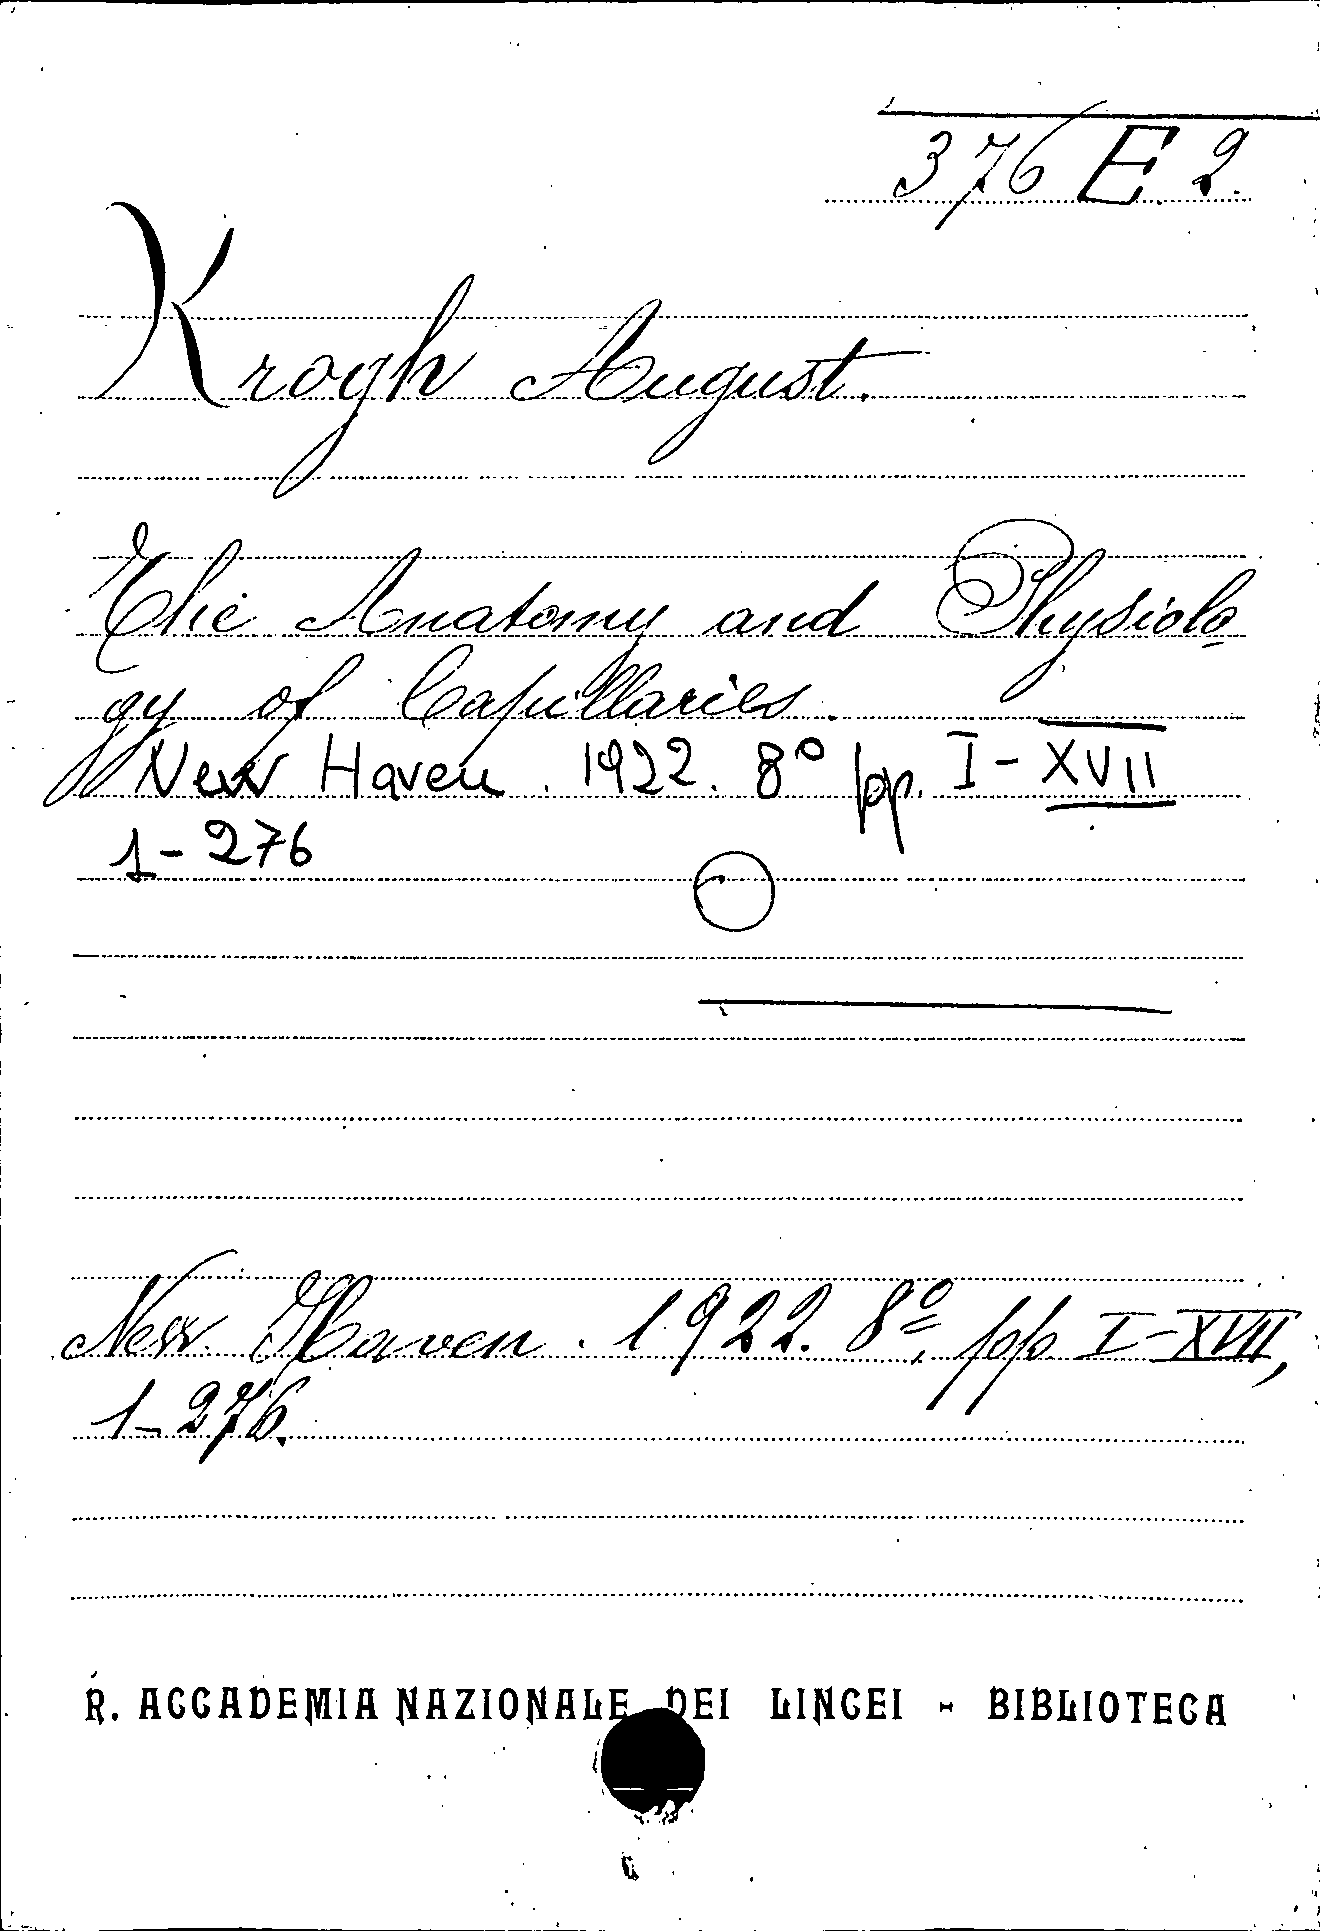 376 E 2.
Krogh August.
The Anatomy and Physiolo
gy of Capillaries.
New Haven. 1922. 8° pp. I - XVII
1 - 276
New Haven. 1922. 8°, pp I - XVII,
1 - 276.
R. ACCADEMIA NAZIONALE DEI LINCEI - BIBLIOTECA